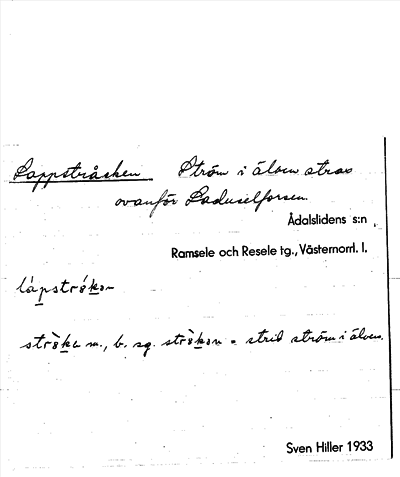 Lappstråken Ström i älven strax
ovanför Laduselforsen.
Ådalslidens s:n
Ramsele och Resele tg., Västernorrl. l.
la̱pstrȯ́ḵon
strȯ̀ḵa m., b. sg. strȯ̀ḵon = strid ström i älven.
Sven Hiller 1933